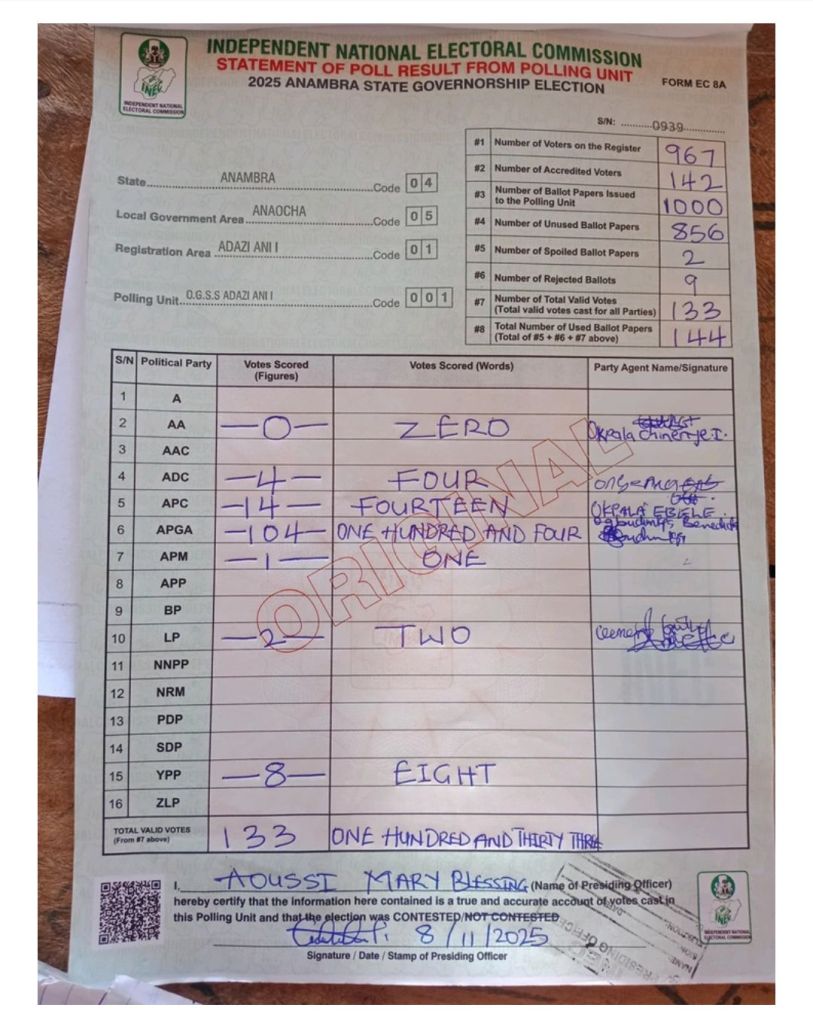 INDEPENDENT NATIONAL ELECTORAL COMMISSION
STATEMENT OF POLL RESULT FROM POLLING UNIT
2025 ANAMBRA STATE GOVERNORSHIP ELECTION
FORM EC 8A
INDEPENDENT NATIONAL
ELECTORAL COMMISSION
S/N: 0939
State ANAMBRA Code 0 4
Local Government Area ANAOCHA Code 0 5
Registration Area ADAZI ANI I Code 0 1
Polling Unit O.G.S.S ADAZI ANI I Code 0 0 1
#1 Number of Voters on the Register 967
#2 Number of Accredited Voters 142
#3 Number of Ballot Papers Issued
to the Polling Unit 1000
#4 Number of Unused Ballot Papers 856
#5 Number of Spoiled Ballot Papers 2
#6 Number of Rejected Ballots 9
#7 Number of Total Valid Votes
(Total valid votes cast for all Parties) 133
#8 Total Number of Used Ballot Papers
(Total of #5 + #6 + #7 above) 144
S/N Political Party Votes Scored (Figures) Votes Scored (Words) Party Agent Name/Signature
1 A
2 AA —0— ZERO Okpala
3 AAC
4 ADC —4— FOUR
5 APC —14— FOURTEEN OKPALA EBELE
6 APGA —104— ONE HUNDRED AND FOUR
7 APM —1— ONE
8 APP
9 BP
10 LP —2— TWO
11 NNPP
12 NRM
13 PDP
14 SDP
15 YPP —8— EIGHT
16 ZLP
TOTAL VALID VOTES
(From #7 above) 133 ONE HUNDRED AND THIRTY THREE
ORIGINAL
I, AOUSSI MARY BLESSING (Name of Presiding Officer)
hereby certify that the information here contained is a true and accurate account of votes cast in
this Polling Unit and that the election was CONTESTED/NOT CONTESTED
8/11/2025
Signature / Date / Stamp of Presiding Officer
PRESIDING OFFICER
INDEPENDENT NATIONAL
ELECTORAL COMMISSION